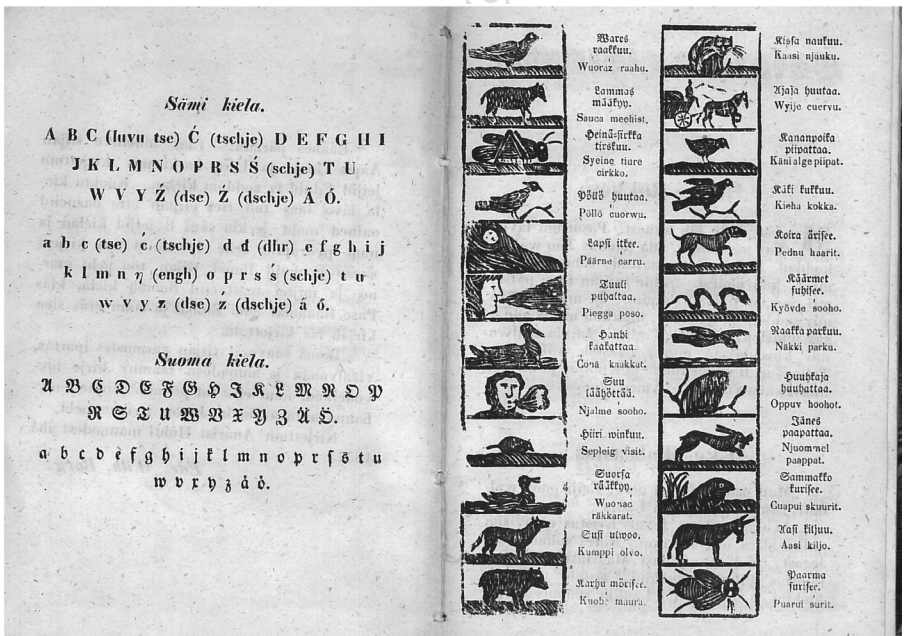 Sämi kiela.
A B C (luvu tse) Ć (tschje) D E F G H I
J K L M N O P R S Ś (schje) T U
W V Y Ź (dse) Ź (dschje) Ã Ó.
a b c (tse) c (tschje) d đ (dhr) e f g h i j
k l m n η (engh) o p r s ś (schje) t u
w v y z (dse) ź (dschje) ã ó.
Suoma kiela.
A B C D E F G H J K L M N O P
R S T U W V X Y Z Ä Ö.
a b c d e f g h i j k l m n o p r s s t u
w v x y z á ó.
Wares
raakkuu.
Wuoraz raahu.
Lammas
määkyy.
Sauca meehist.
Heinä-sirkka
tirskuu.
Syeine tiure
cirkko.
Pöllö huutaa.
Pöllö cuorwu.
Lapsi itkee.
Päärne carru.
Tuuli
puhaltaa.
Piegga poso.
Hanhi
kaakattaa.
Conä kaakkat.
Suu
läähöttää.
Njalme sooho.
Hiiri winkuu.
Sepleig visit.
Suorsa
rääkkyy.
Wuonac
räkkarat.
Susi ulwoo.
Kumppi olvo.
Karhu mörisee.
Kuobž maura.
Kissa naukuu.
Kaasi njauku.
Ajaja huutaa.
Wyije cuervu.
Kananpoika
piipattaa.
Käni alge piipat.
Käki kukkuu.
Kieha kokka.
Koira ärisee.
Pednu haarit.
Käärmet
suhisee.
Kyövde sooho.
Raakka parkuu.
Näkki parku.
Huuhkaja
huuhattaa.
Oppuv hoohot.
Jänes
paapattaa.
Njuommel
paappat.
Sammakko
kurisee.
Cuapui skuurit.
Aasi kiljuu.
Aasi kiljo.
Paarma
surisee.
Puarui surit.